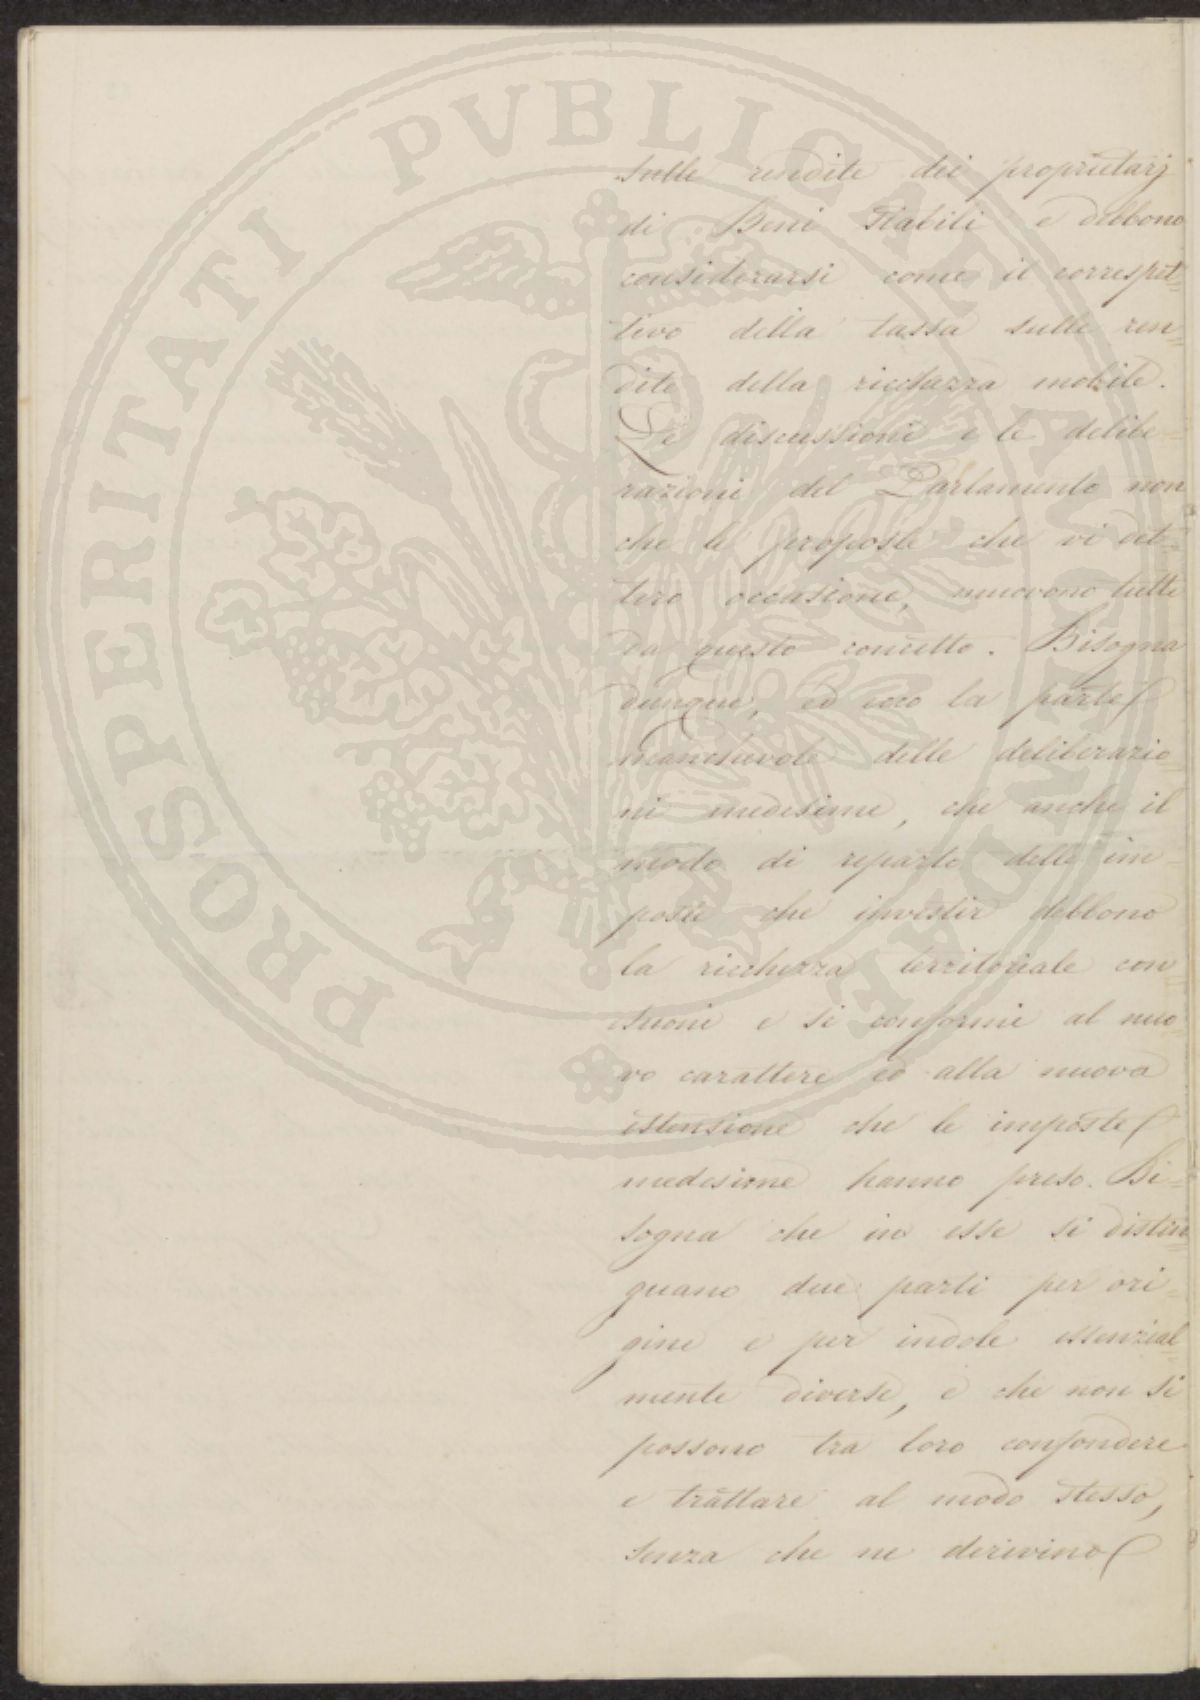 sulle rendite dei proprietarj
di Beni stabili e debbono
considerarsi come il correspet=
tivo della tassa sulle ren=
dite della ricchezza mobile.
Le discussioni e le delibe=
razioni del Parlamento non
che le proposte che vi det=
tero occasione, muovono tutte
da questo concetto. Bisogna
dunque, ed ecco la parte
manchevole delle deliberazio=
ni medesime, che anche il
modo di reparto delle im=
poste che investir debbono
la ricchezza territoriale con=
suoni e si conformi al nuo=
vo carattere ed alla nuova
estensione che le imposte
medesime hanno preso. Bi=
sogna che in esse si distin=
guano due parti per ori=
gine e per indole essenzial=
mente diverse, e che non si
possono tra loro confondere
e trattare al modo stesso,
senza che ne derivino
PROSPERITATI PVBLICAE AVGENDAE